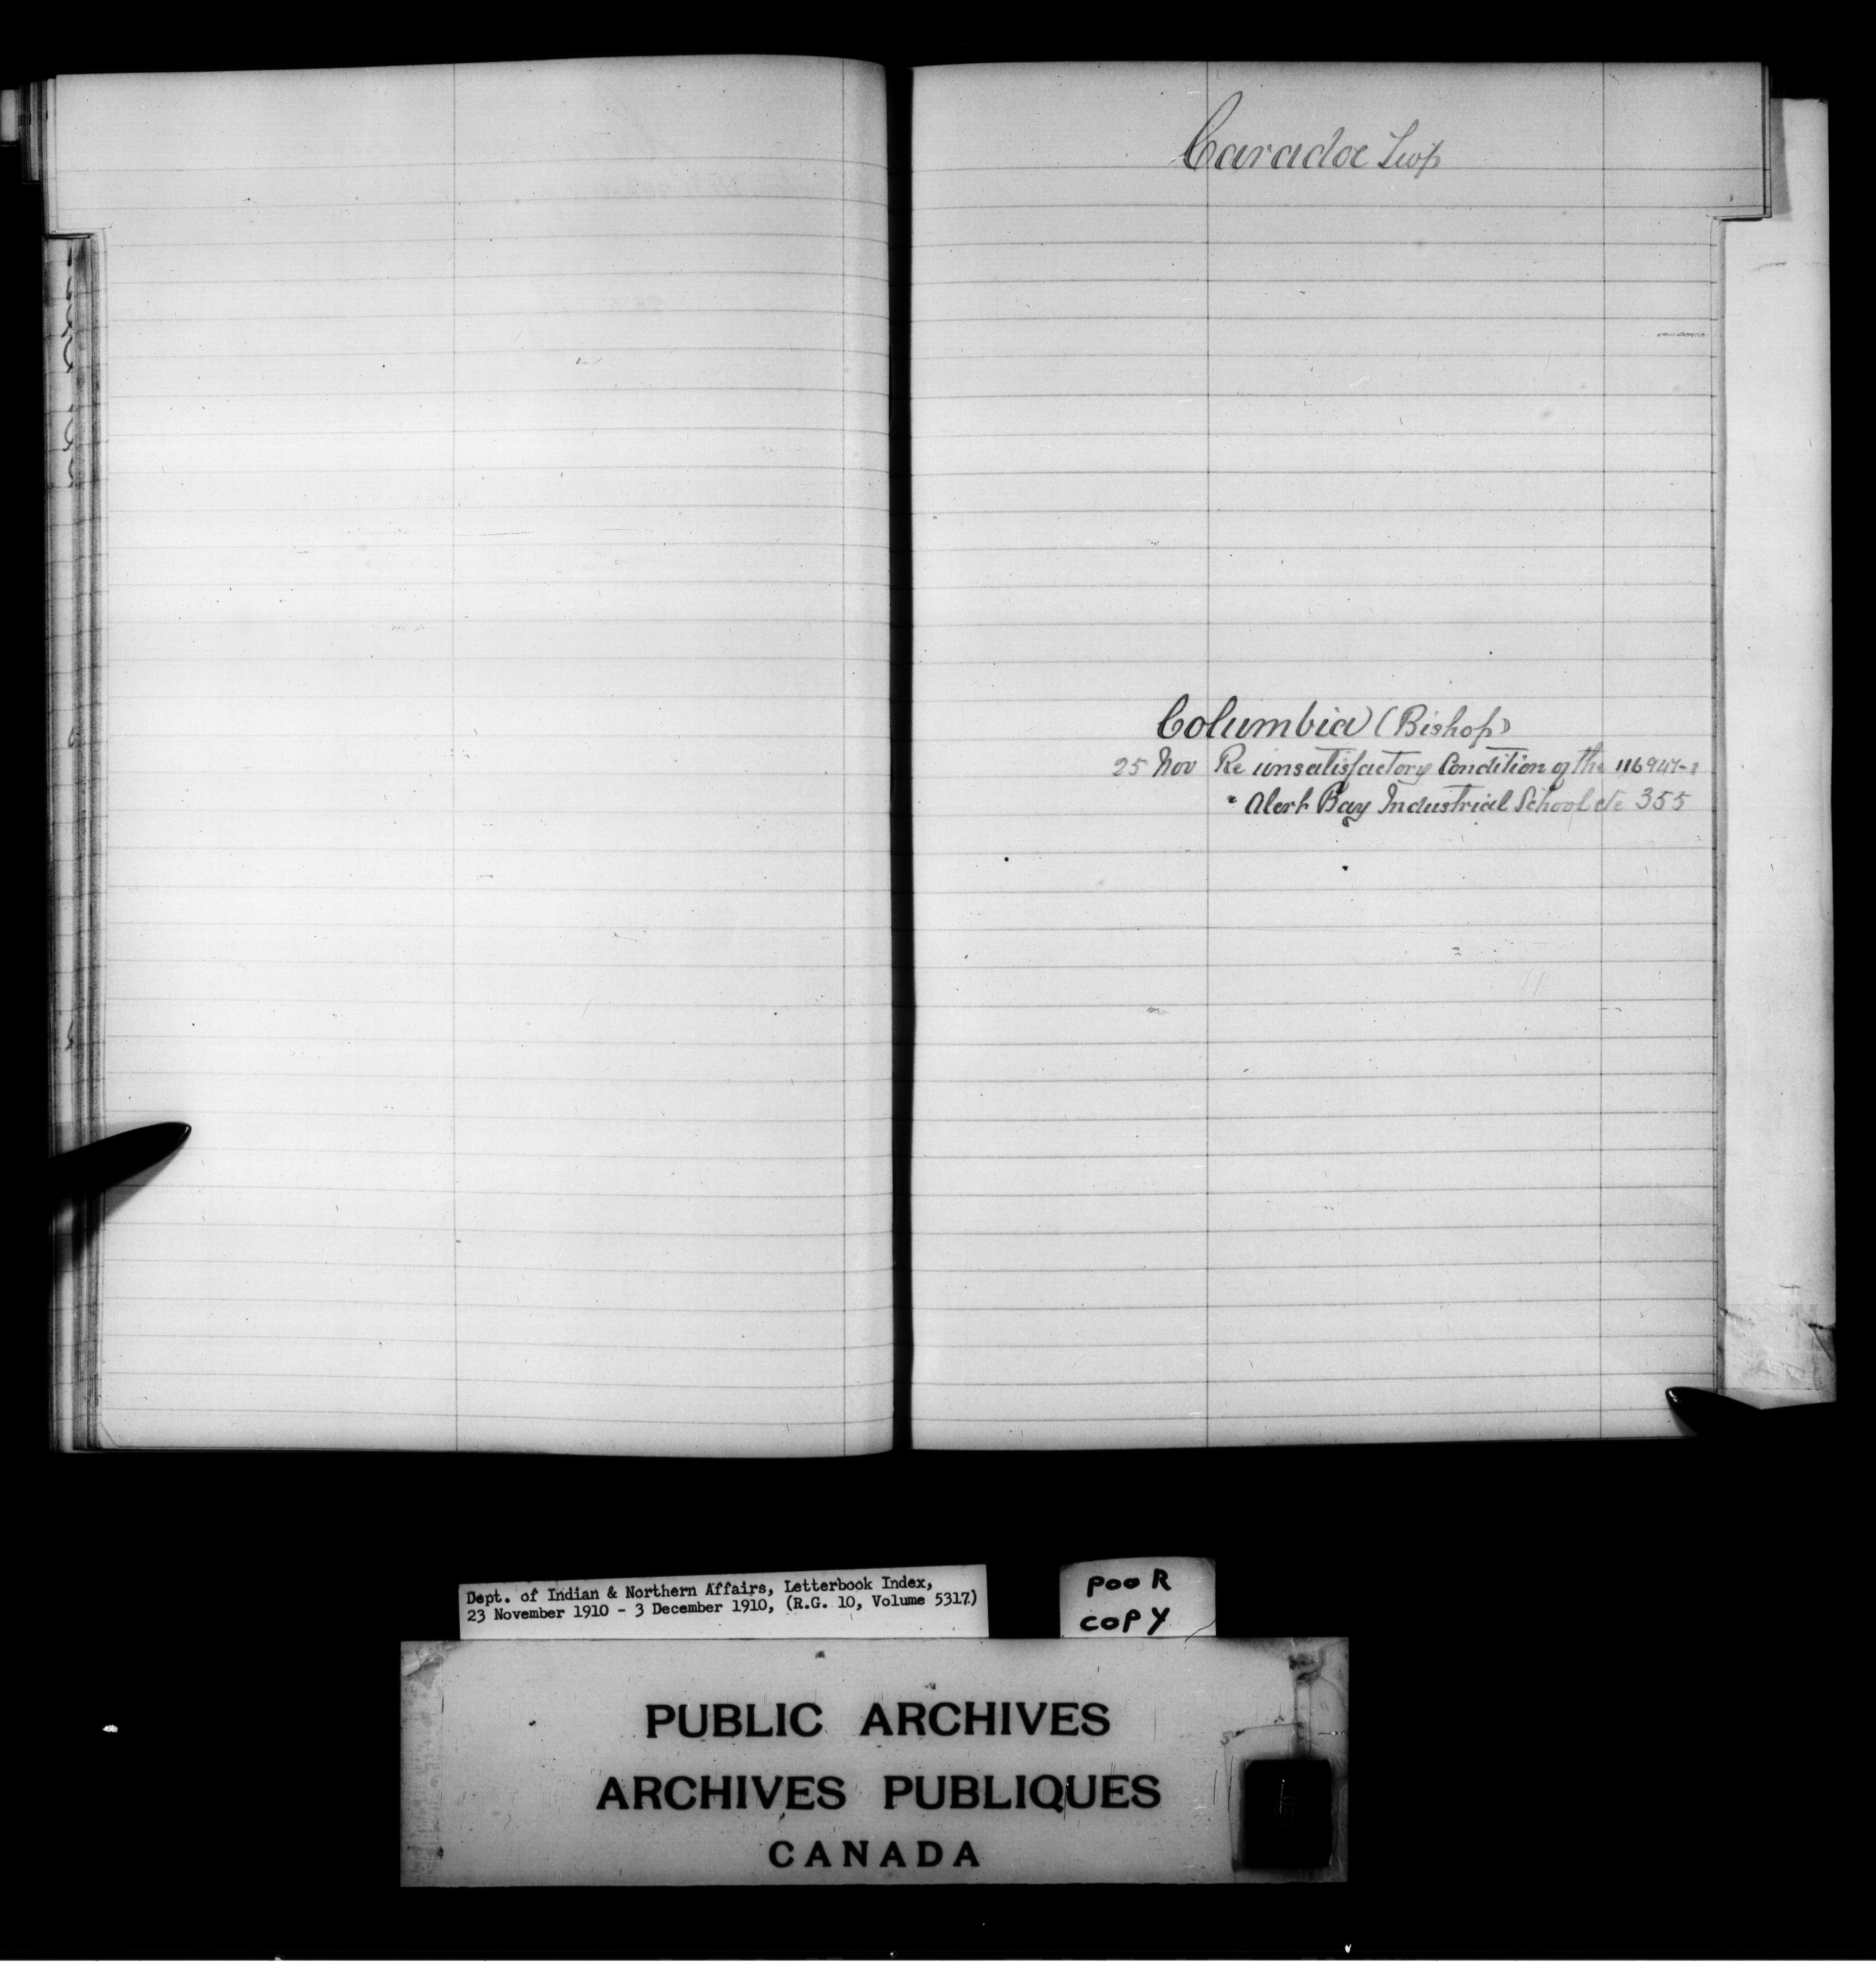 Caradoc Twp
Columbia (Bishop)
25 Nov Re unsatisfactory Condition of the 116947-1
" Alert Bay Industrial School etc 355
Dept. of Indian & Northern Affairs, Letterbook Index,
23 November 1910 - 3 December 1910, (R.G. 10, Volume 5317)
POOR
COPY
PUBLIC ARCHIVES
ARCHIVES PUBLIQUES
CANADA